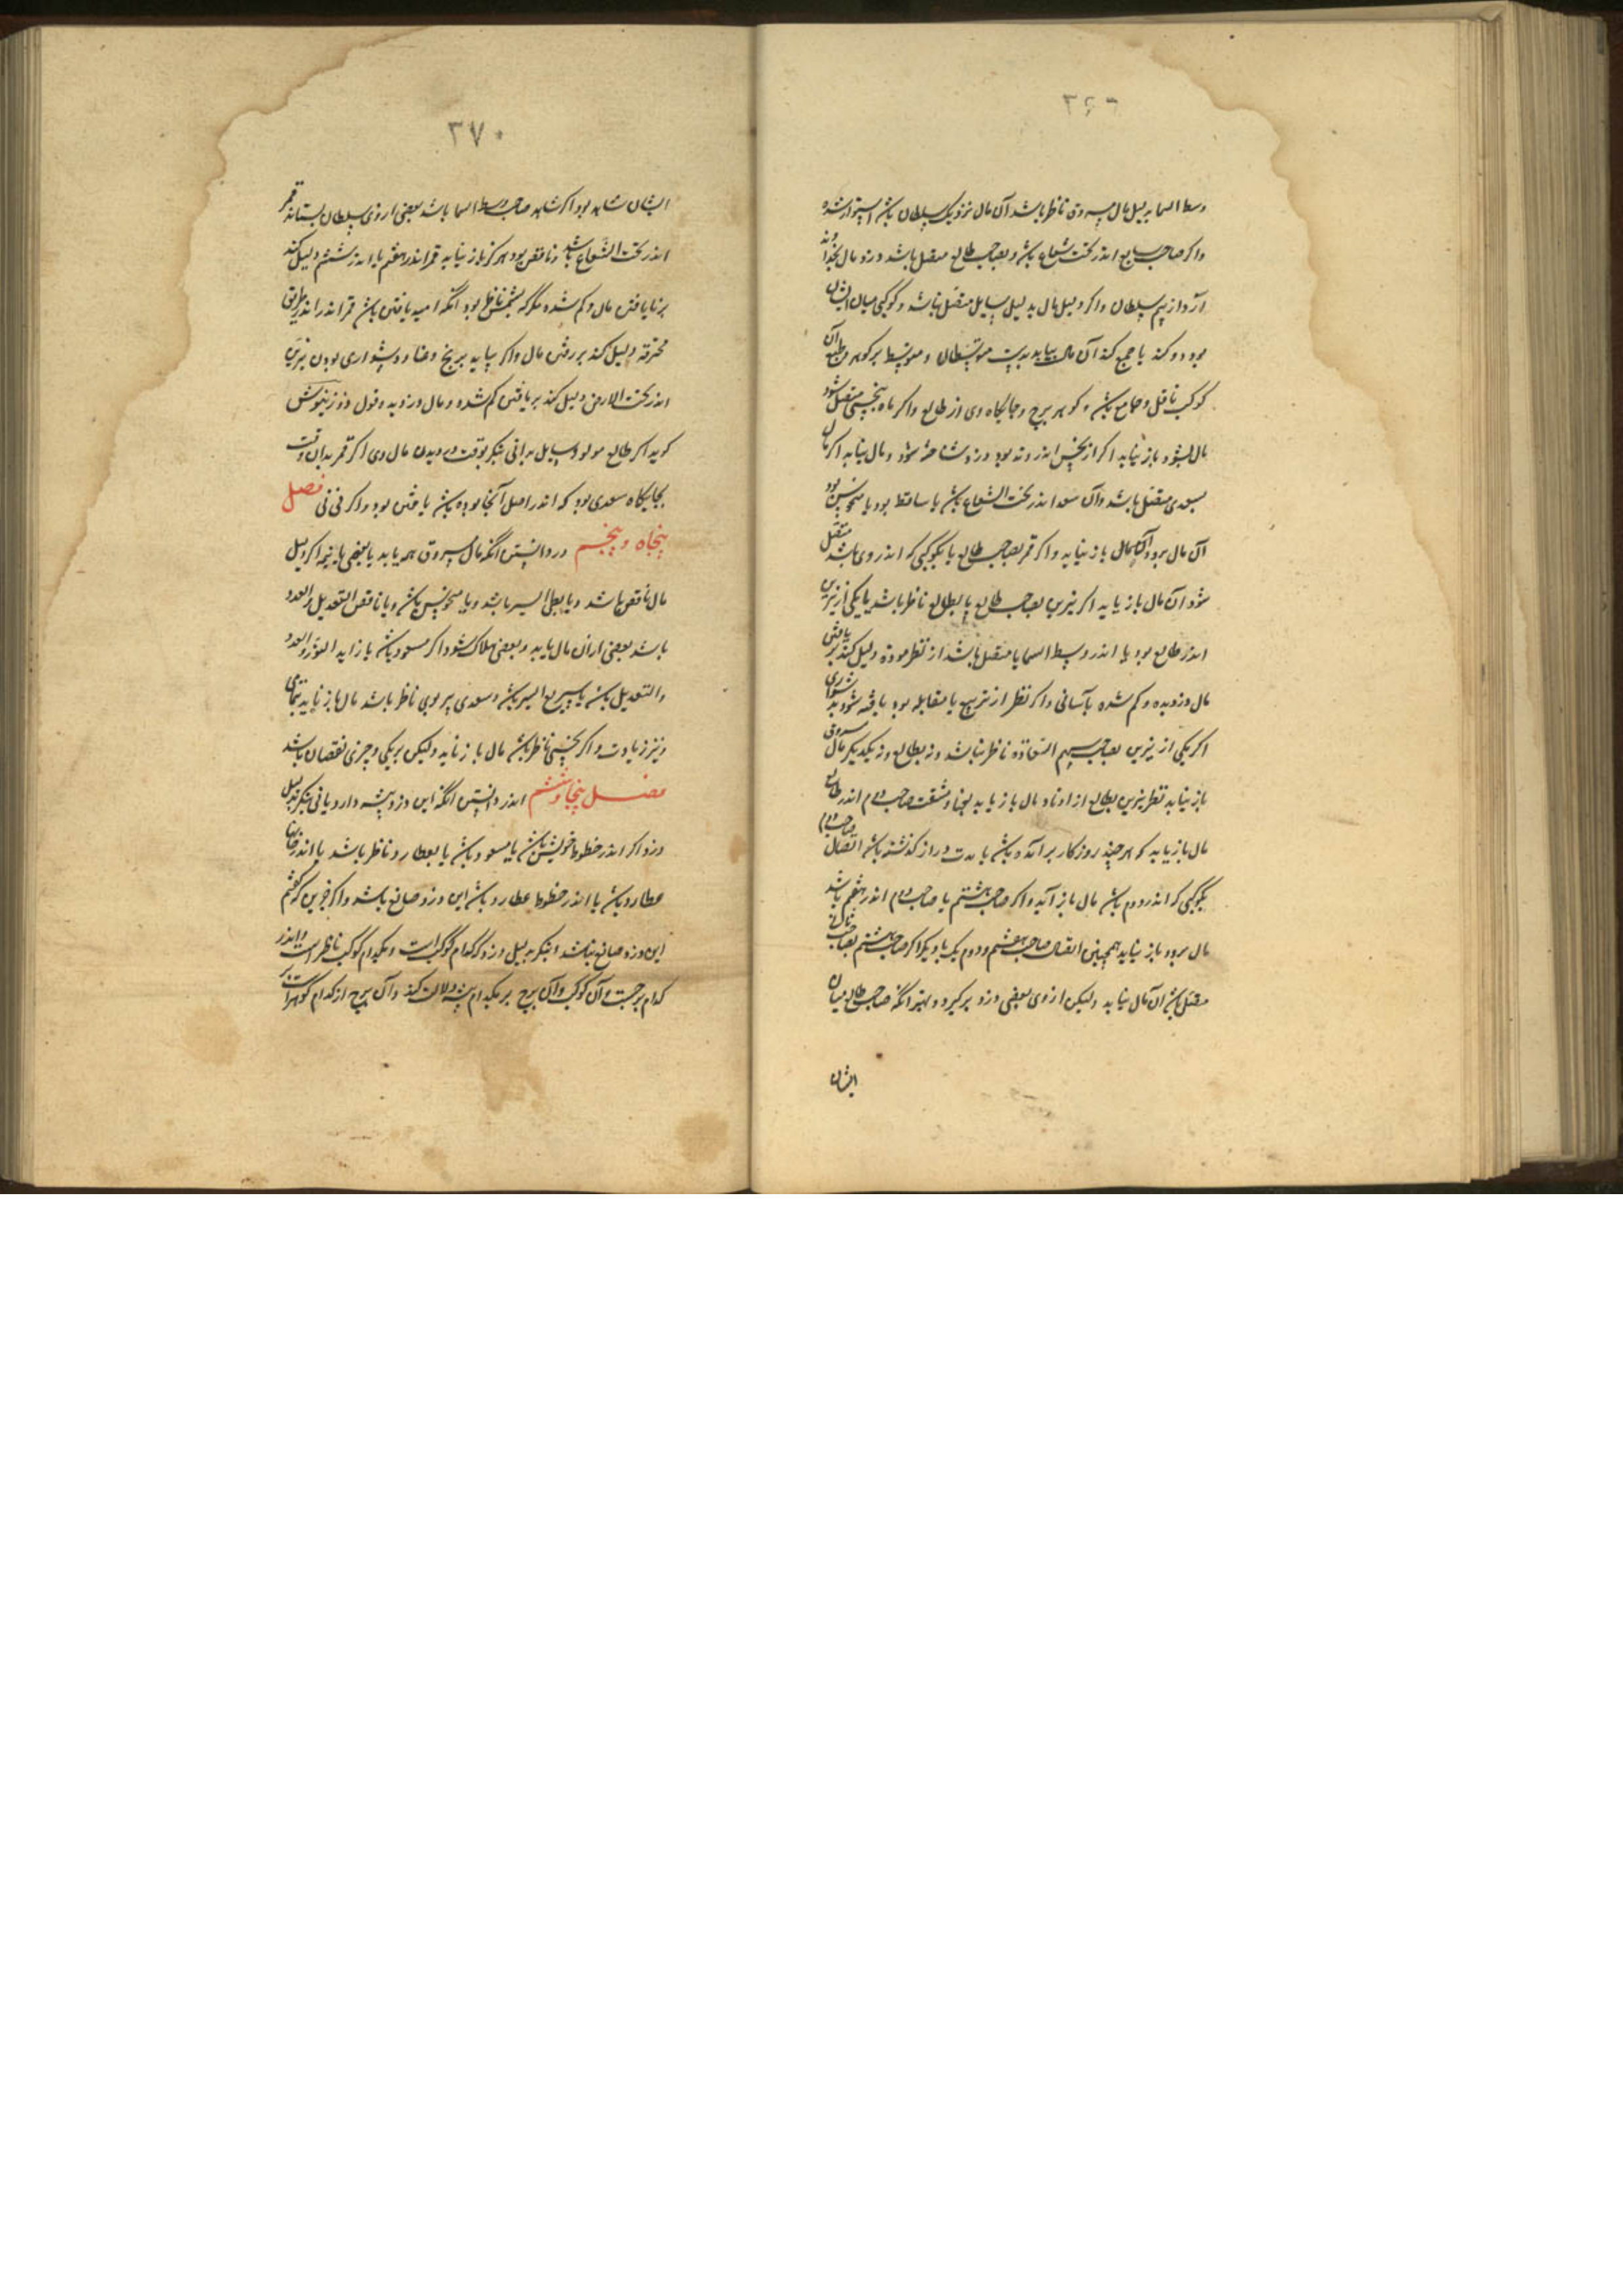 ۳۶۹
وسط السما بدلیل مال مسروق ناظر باشد آن مال نزدیک سلطان باشد استوار شده
واکر صاحب سابع اندر تحت شعاع باشد و بصاحب طالع متصل باشد دزد مال بخداوند
آرد از بیم سلطان واکر دلیل مال بدلیل سایل متصل نباشد و کوکبی میان ایشان
بود رد کند یا جمع کند آن مال بیابد بدست متوسطان و متوسط بر کوهر و طبع آن
کوکب ناقل و جامع باشد و کوهر برج و جایکاه وی از طالع واکر ماه بنحسی متصل شود
مال بشود باز نیابد اکر آن نحس اندر وتد بود دزد شناخته شود و مال نیابد اکر ماه
بسعدی متصل باشد وآن سعد اندر تحت الشعاع باشد یا ساقط بود یا منحوس بود
آن مال برود باز نیابد واکر قمر بصاحب طالع یا بکوکبی که اندر وی باشد متصل
شود آن مال باز یابد اکر نیرین بصاحب طالع یا بطالع ناظر باشد یا یکی از نیرین
اندر طالع بود یا اندر وسط السما یا متصل باشد از نظر مودة دلیل کند بر یافتن
مال دزدیده و کم شده بآسانی واکر نظر از تربیع یا مقابله بود یافته شود بدشواری
اکر یکی از نیرین بصاحب سهم السعاده ناظر نباشد و نه بطالع و نه یکدیکر مال مسروق
باز نیابد نظر نیرین بطالع از اوتاد مال باز یابد بعنا و مشقت صاحب دوم اندر طالع
مال باز یابد که هر چند روزکار برآمده باشد یا مدت دراز کذشته باشد اتصال صاحب دوم
بکوکبی که اندر دوم باشد مال باز آید واکر صاحب هشتم یا صاحب دوم اندر هفتم باشد
مال برود باز نیابد همچنین اتصال صاحب هشتم و دوم یک با دیکر اکر صاحب هشتم بصاحب طالع
متصل باشد آن مال نیابد ولیکن از وی بعضی دزد برکیرد و بهتر آنکه صاحب طالع میان
ایشان
۳۷۰
ایشان شاهد بود اکر شاهد صاحب وسط السما باشد بعضی از وی سلطان بستاند قمر
اندر تحت الشعاع باشد و ناقص بود هرکز باز نیابد قمر اندر هفتم یا اندر ششم دلیل کند
بر نایافتن مال و کم شده مکر که بشمس ناظر بود آنکه امید یافتن باشد قمر اندر اندر طریق
محترقه دلیل کند بر رفتن مال واکر بیابد برنج و عنا و دشواری بودن نیرین
اندر تحت الارض دلیل کند بر یافتن کم شده و مال دزدیده و قول ذوزنیوش
کوید اکر طالع مولود سایل بدانی بنکر بوقت دزدیدن مال وی اکر قمر بدان وقت
بجایکاه سعدی بود که اندر اصل آنجا بوده باشد یافتن بود واکر نی نی فصل
پنجاه و پنجم در دانستن آنکه مال مسروق همه یابد یا بعضی یا نه اکر دلیل
مال ناقص باشد و یا بطی السیر باشد و یا منحوس باشد و یا ناقص التعدیل و العدد
باشد بعضی از آن مال یابد و بعضی هلاک شود اکر مسعود باشد یا زاید النور و العدد
و التعدیل باشد یا سریع السیر باشد و سعدی بر وی ناظر باشد مال باز یابد بتمامی
و نیز زیادت واکر نحسی ناظر باشد مال باز یابد ولیکن بر یکی و چیزی نقصان باشد
فصل پنجاه و ششم اندر دانستن آنکه این دزد پیشه دارد یا نی بنکر بدلیل
دزد اکر اندر حظوظ خویش باشد یا مسعود باشد یا بعطارد ناظر باشد یا اندر خانهاء
عطارد باشد یا اندر حظوظ عطارد باشد این دزد صانع باشد واکر جز این که کفتم
این دزد صانع نباشد بنکر بدلیل دزد که کدام کوکب است و بکدام کوکب ناظر است واندر
کدام برجست وآن کوکب وآن برج بر کدام پیشه دلالت کند وآن برج از کدام کوهر است